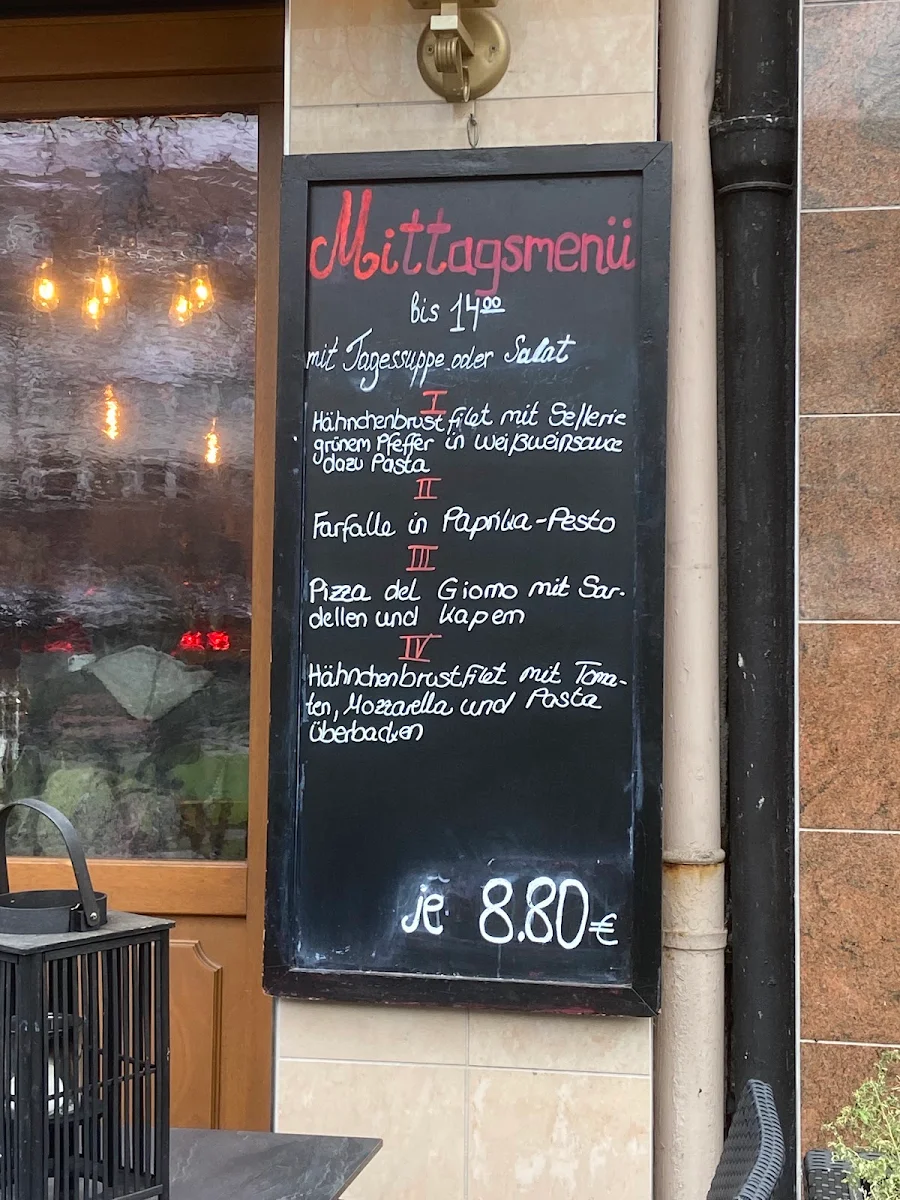 Mittagsmenü
bis 14⁰⁰
mit Tagessuppe oder Salat
I
Hähnchenbrustfilet mit Sellerie
grünem Pfeffer in Weißweinsauce
dazu Pasta
II
Farfalle in Paprika-Pesto
III
Pizza del Giorno mit Sar-
dellen und Kapern
IV
Hähnchenbrustfilet mit Toma-
ten, Mozzarella und Pasta
überbacken
je 8.80€